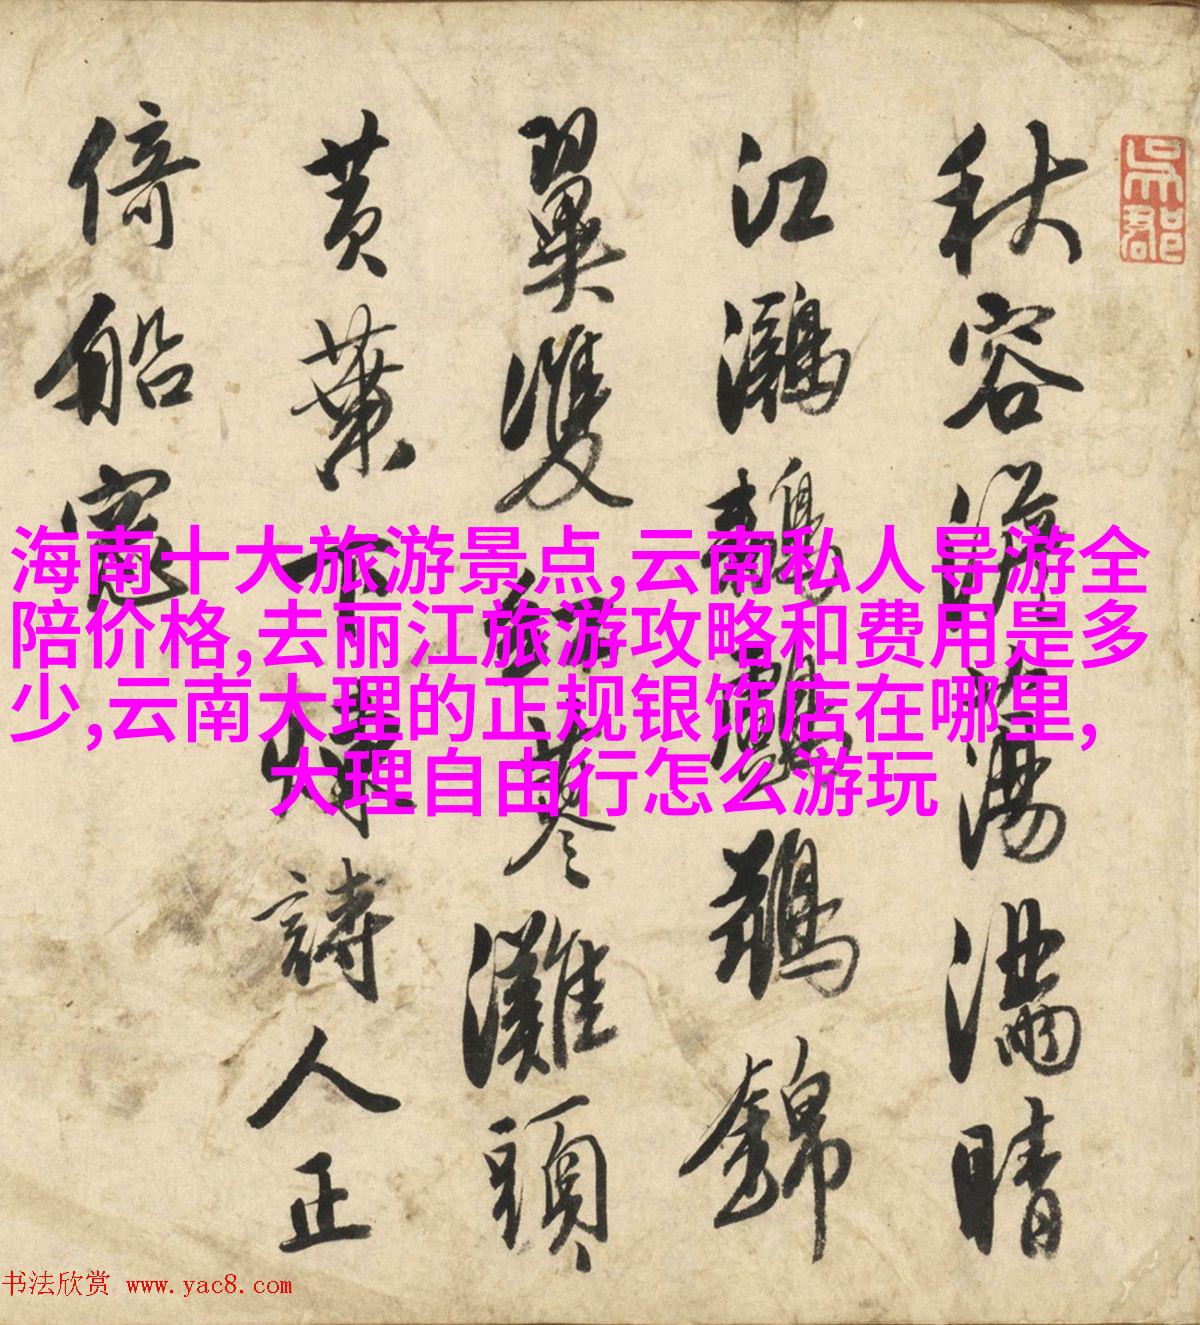 吴郡
秋容淡蕩滿晴
江鸂鶒鵁鶄錦
翼雙紅蓼灘頭
黄葉下悮詩人正
倚船窻
海南十大旅游景点,云南私人导游全
陪价格,去丽江旅游攻略和费用是多
少,云南大理的正规银饰店在哪里,
大理自由行怎么游玩
书法欣赏 www.yac8.com